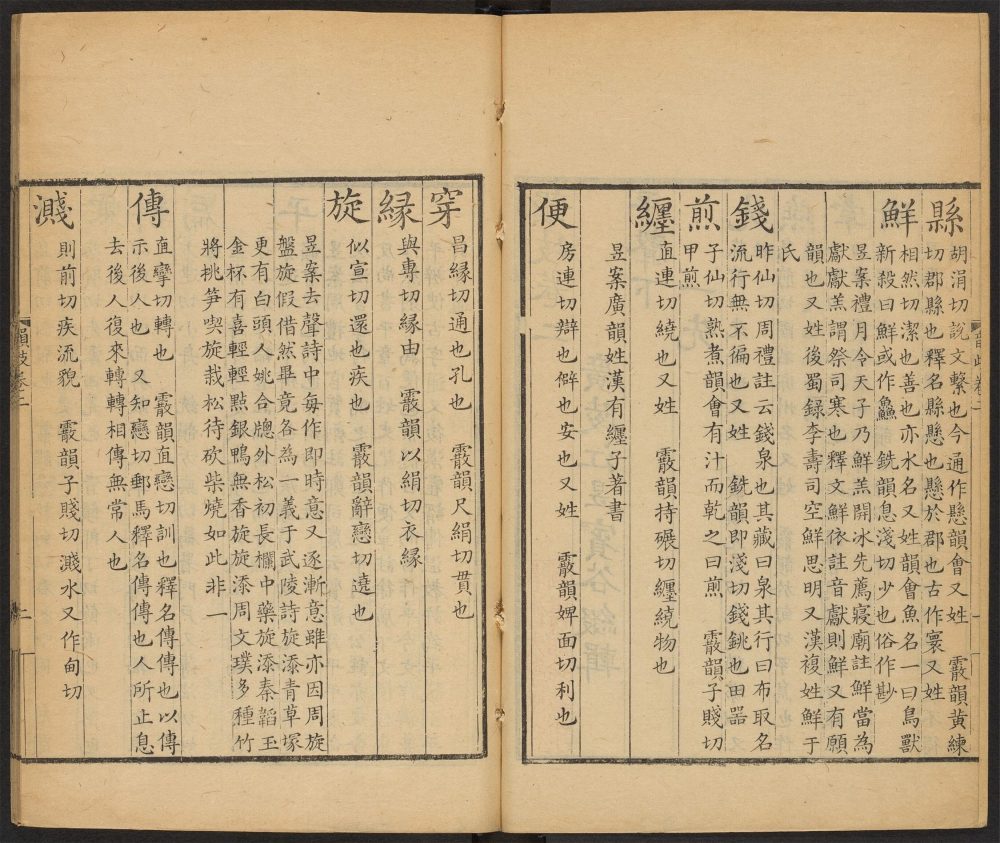 縣
胡涓切說文繫也今通作懸韻會又姓　霰韻黃練
切郡縣也釋名縣懸也懸於郡也古作寰又姓
鮮
相然切潔也善也亦水名又姓韻會魚名一曰鳥獸
新殺曰鮮或作鱻　銑韻息淺切少也俗作尠
昱案禮月令天子乃鮮羔開冰先薦寢廟註鮮當為
獻獻羔謂祭司寒也釋文鮮依註音獻則鮮又有願
韻也又姓後蜀錄李壽司空鮮思明又漢複姓鮮于
氏
錢
昨仙切周禮註云錢泉也其藏曰泉其行曰布取名
流行無不徧也又姓　銑韻即淺切錢銚也田器
煎
子仙切熟煮韻會有汁而乾之曰煎　霰韻子賤切
甲煎
纏
直連切繞也又姓　霰韻持碾切纏繞物也
昱案廣韻姓漢有纏子著書
便
房連切辯也僻也安也又姓　霰韻婢面切利也
穿
昌緣切通也孔也　霰韻尺絹切貫也
緣
與專切緣由　霰韻以絹切衣緣
旋
似宣切還也疾也　霰韻辭戀切遶也
昱案去聲詩中每作即時意又逐漸意雖亦因周旋
盤旋假借然畢竟各為一義于武陵詩旋添青草塚
更有白頭人姚合牕外松初長欄中藥旋添秦韜玉
金杯有喜輕輕點銀鴨無香旋旋添周文璞多種竹
將挑笋喫旋栽松待砍柴燒如此非一
傳
直攣切轉也　霰韻直戀切訓也釋名傳傳也以傳
示後人也　又知戀切郵馬釋名傳傳也人所止息
去後人復來轉轉相傳無常人也
濺
則前切疾流貌　霰韻子賤切濺水又作甸切
韻歧卷二
二